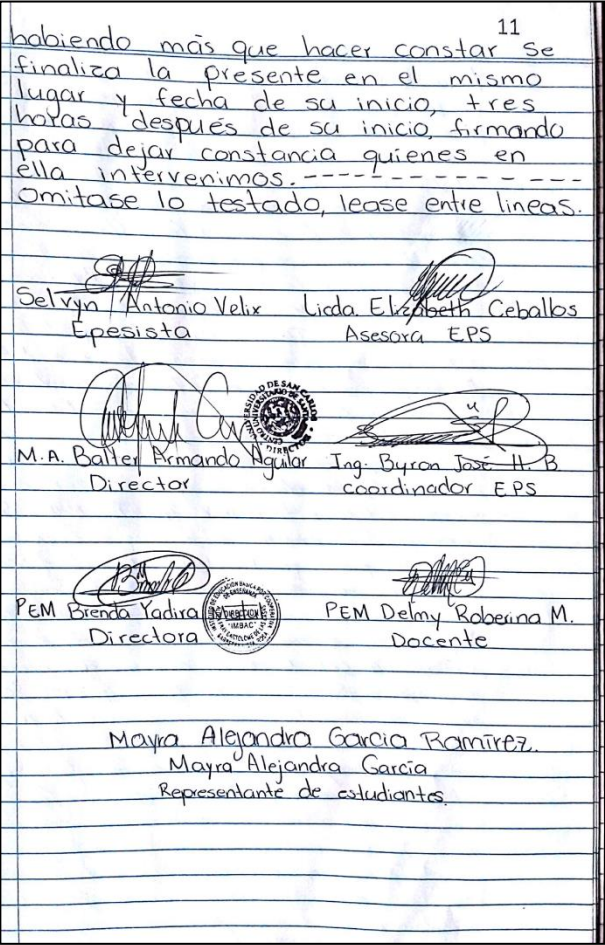 11
habiendo más que hacer constar se
finaliza la presente en el mismo
lugar y fecha de su inicio, tres
horas después de su inicio, firmando
para dejar constancia quienes en
ella intervenimos. - - - - - - - - - - - -
Omitase lo testado, lease entre lineas.
Selvyn Antonio Velix Licda. Elizabeth Ceballos
Epesista Asesora EPS
M.A. Balter Armando Aguilar Ing. Byron José H. B
Director coordinador EPS
PEM Brenda Yadira PEM Delmy Roberina M.
Directora Docente
Mayra Alejandra Garcia Ramírez.
Mayra Alejandra García
Representante de estudiantes.